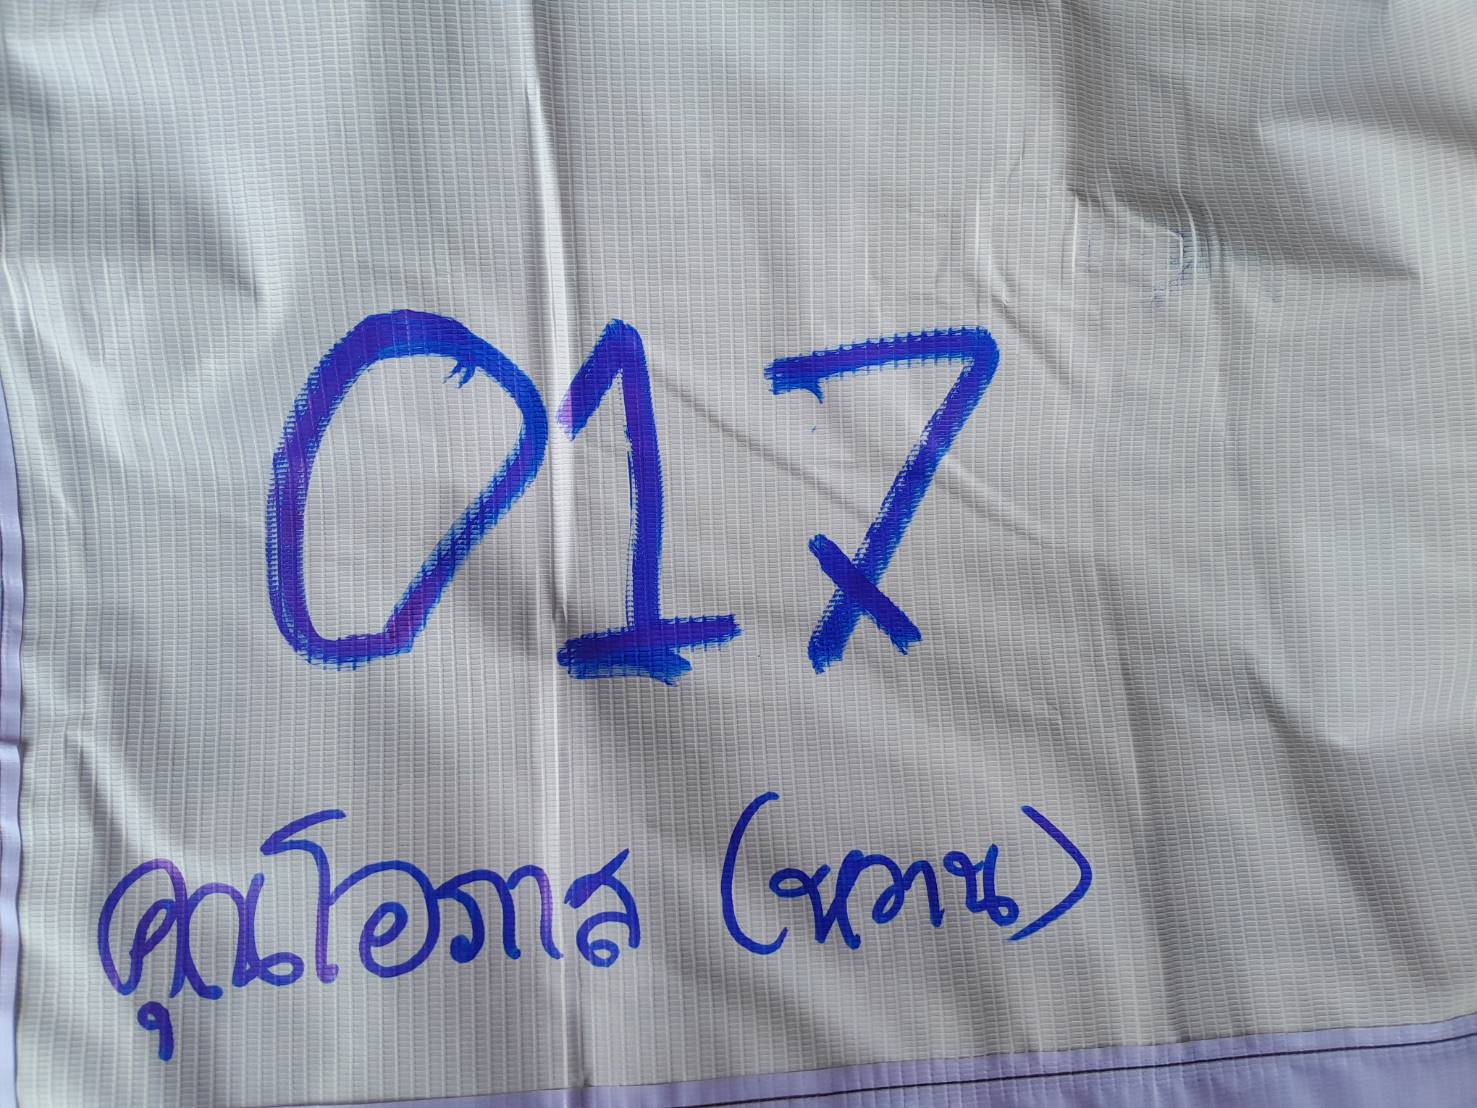 017
คุณโอภาส (หวาน)